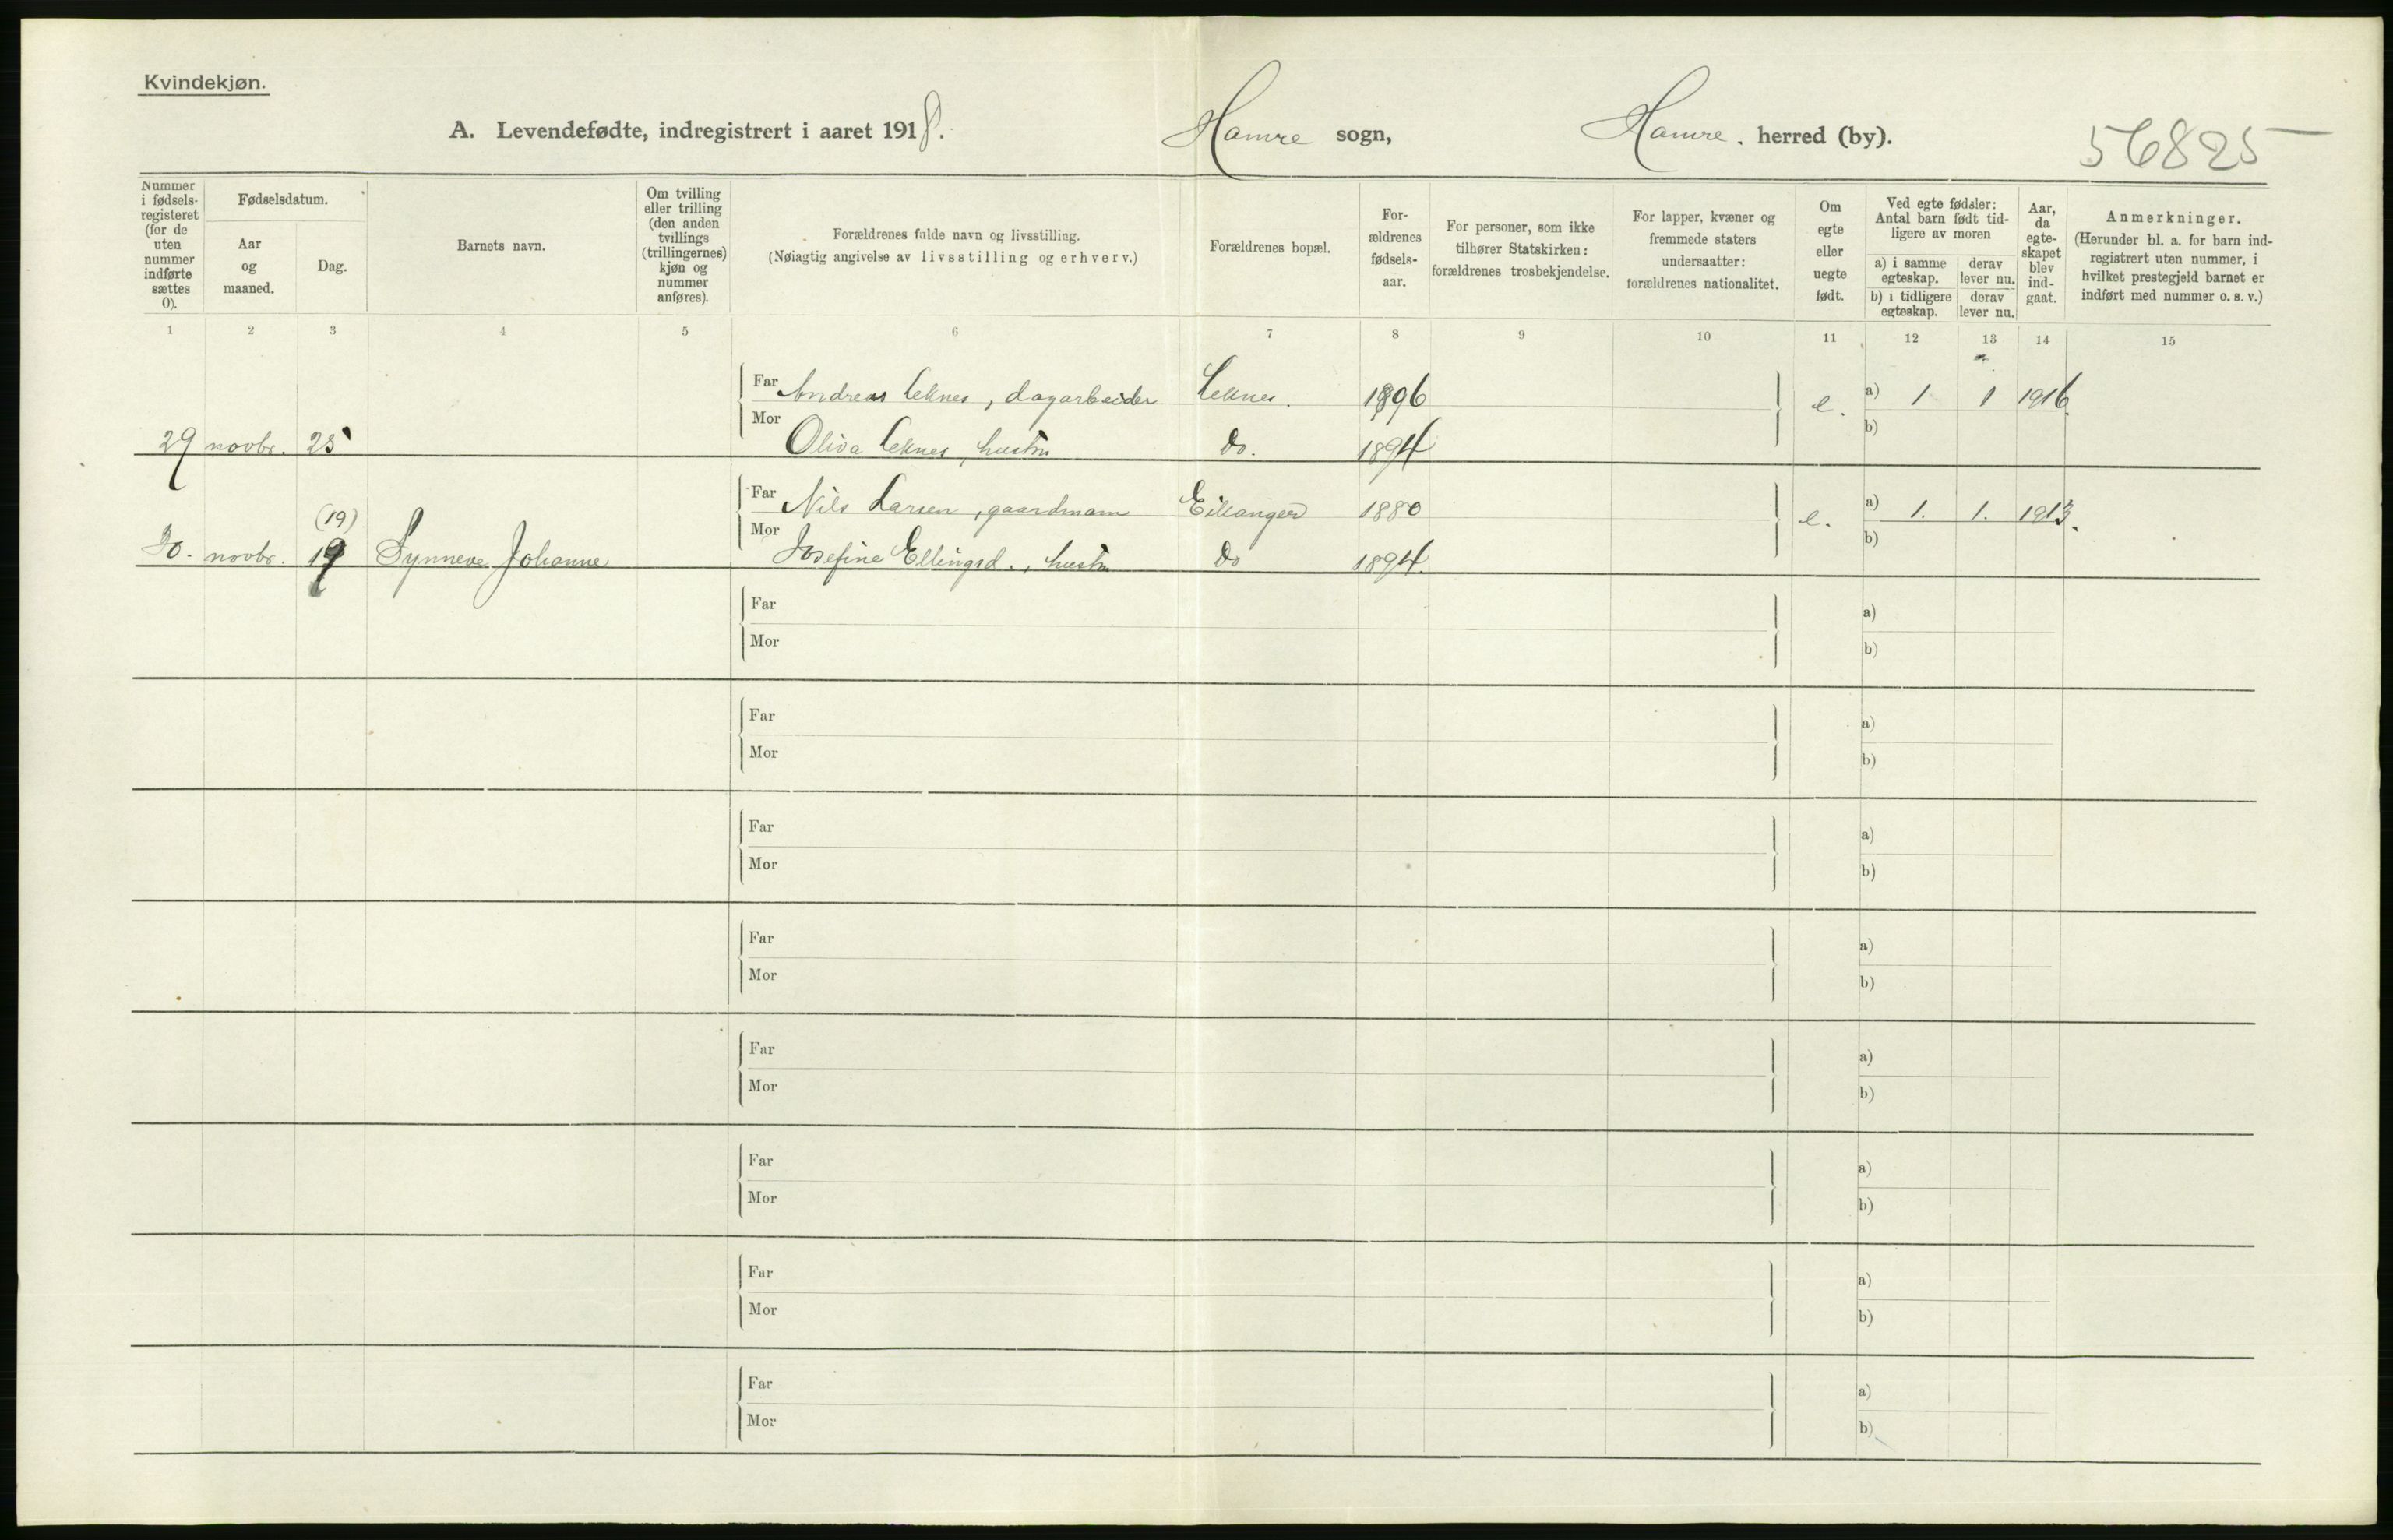 Kvindekjøn.
A. Levendefødte, indregistrert i aaret 1918.
Hamre sogn,
Hamre. herred (by).
56825
Nummer i fødsels-registeret (for de uten nummer indførte sættes 0).
Fødselsdatum.
Aar og maaned.
Dag.
Barnets navn.
Om tvilling eller trilling (den anden tvillings (trillingernes) kjøn og nummer anføres).
Forældrenes fulde navn og livsstilling.
(Nøiagtig angivelse av livsstilling og erhverv.)
Forældrenes bopæl.
For-ældrenes fødsels-aar.
For personer, som ikke tilhører Statskirken: forældrenes trosbekjendelse.
For lapper, kvæner og fremmede staters undersaatter: forældrenes nationalitet.
Om egte eller uegte født.
Ved egte fødsler: Antal barn født tid-ligere av moren
a) i samme egteskap.
derav lever nu.
b) i tidligere egteskap.
derav lever nu.
Aar, da egte-skapet blev ind-gaat.
Anmerkninger.
(Herunder bl. a. for barn ind-registrert uten nummer, i hvilket prestegjeld barnet er indført med nummer o. s. v.)
1 2 3 4 5 6 7 8 9 10 11 12 13 14 15
Far Andreas Leknes, dagarbeider Leknes. 1896 e. a) 1 1 1916
29 novbr. 25 Mor Oliva Leknes, hustru do. 1894 b)
(19) Far Nils Larsen, gaardmann Eikanger 1880 e. a) 1. 1. 1913.
30. novbr. 19 Synneve Johanne Mor Josefine Ellingsd., hustru do 1894. b)
Far a)
Mor b)
Far a)
Mor b)
Far a)
Mor b)
Far a)
Mor b)
Far a)
Mor b)
Far a)
Mor b)
Far a)
Mor b)
Far a)
Mor b)